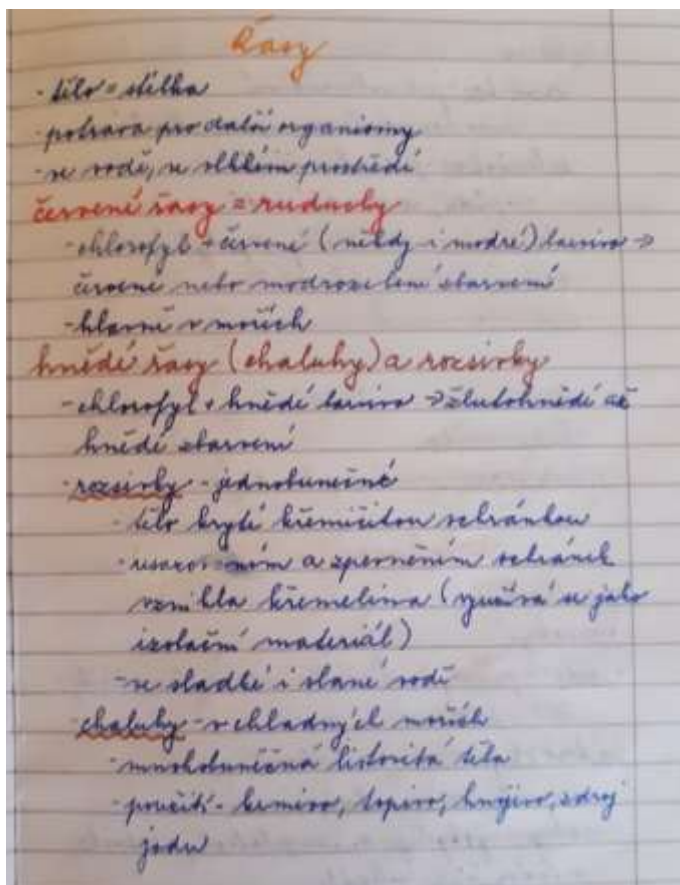 Řasy
- tělo = stélka
- potrava pro další organismy
- ve vodě, ve vlhkém prostředí
červené řasy = ruduchy
- chlorofyl + červené (někdy i modré) barvivo ->
červené nebo modrozelené zbarvení
- hlavně v mořích
hnědé řasy (chaluhy) a rozsivky
- chlorofyl + hnědé barvivo -> žlutohnědé až
hnědé zbarvení
- rozsivky - jednobuněčné
- tělo kryté křemičitou schránkou
- usazováním a zpevněním schránek
vznikla křemelina (využívá se jako
izolační materiál)
- ve sladké i slané vodě
- chaluhy - v chladných mořích
- mnohobuněčná listovitá těla
- použití - krmivo, topivo, hnojivo, zdroj
jodu